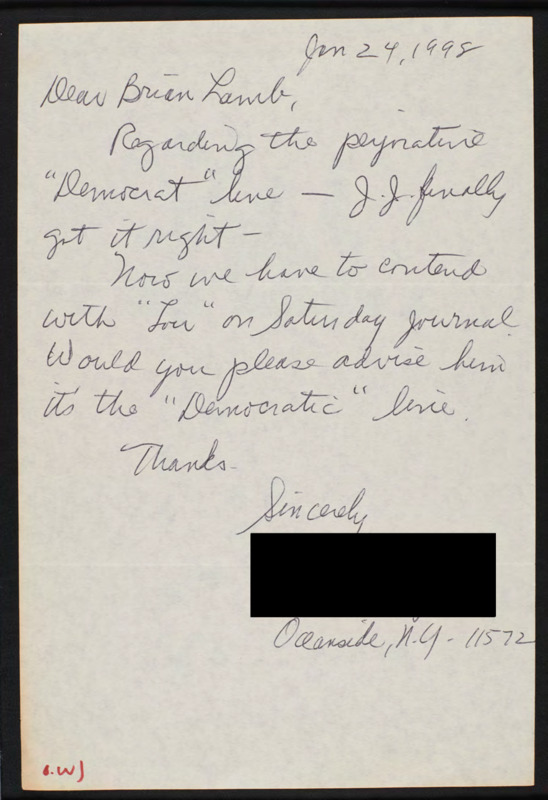 Jan 24, 1998
Dear Brian Lamb,
Regarding the pejorative
"Democrat" line — J.J. finally
got it right —
Now we have to contend
with "Lou" on Saturday Journal.
Would you please advise him
it's the "Democratic" line.
Thanks.
Sincerely
Oceanside, N.Y - 11572